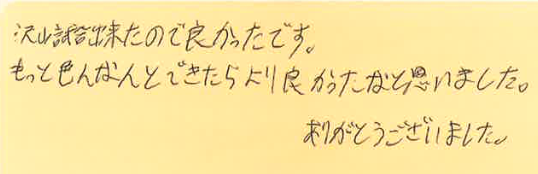 沢山試合出来たので良かったです。
もっと色んなんとできたらより良かったなと思いました。
ありがとうございました。